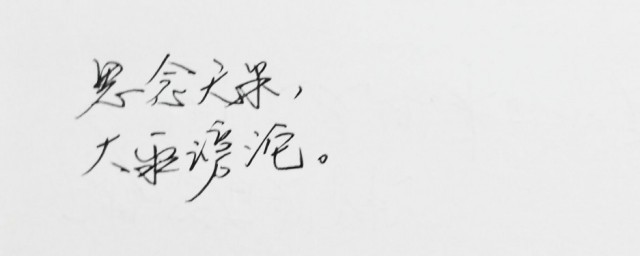 思念无果，
大雨滂沱。